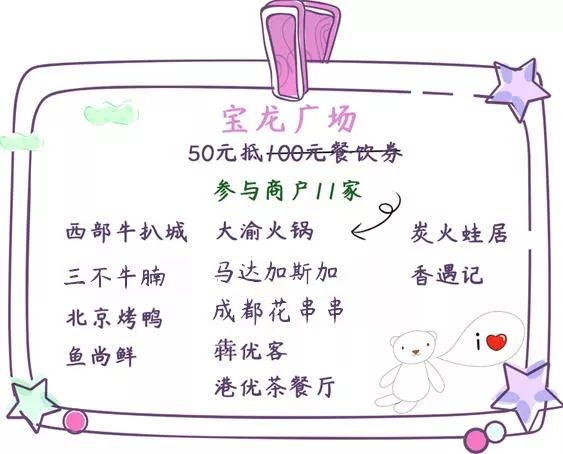 宝龙广场
50元抵100元餐饮券
参与商户11家
西部牛扒城 大渝火锅 炭火蛙居
三不牛腩 马达加斯加 香遇记
北京烤鸭 成都花串串
鱼尚鲜 犇优客
港优茶餐厅
i